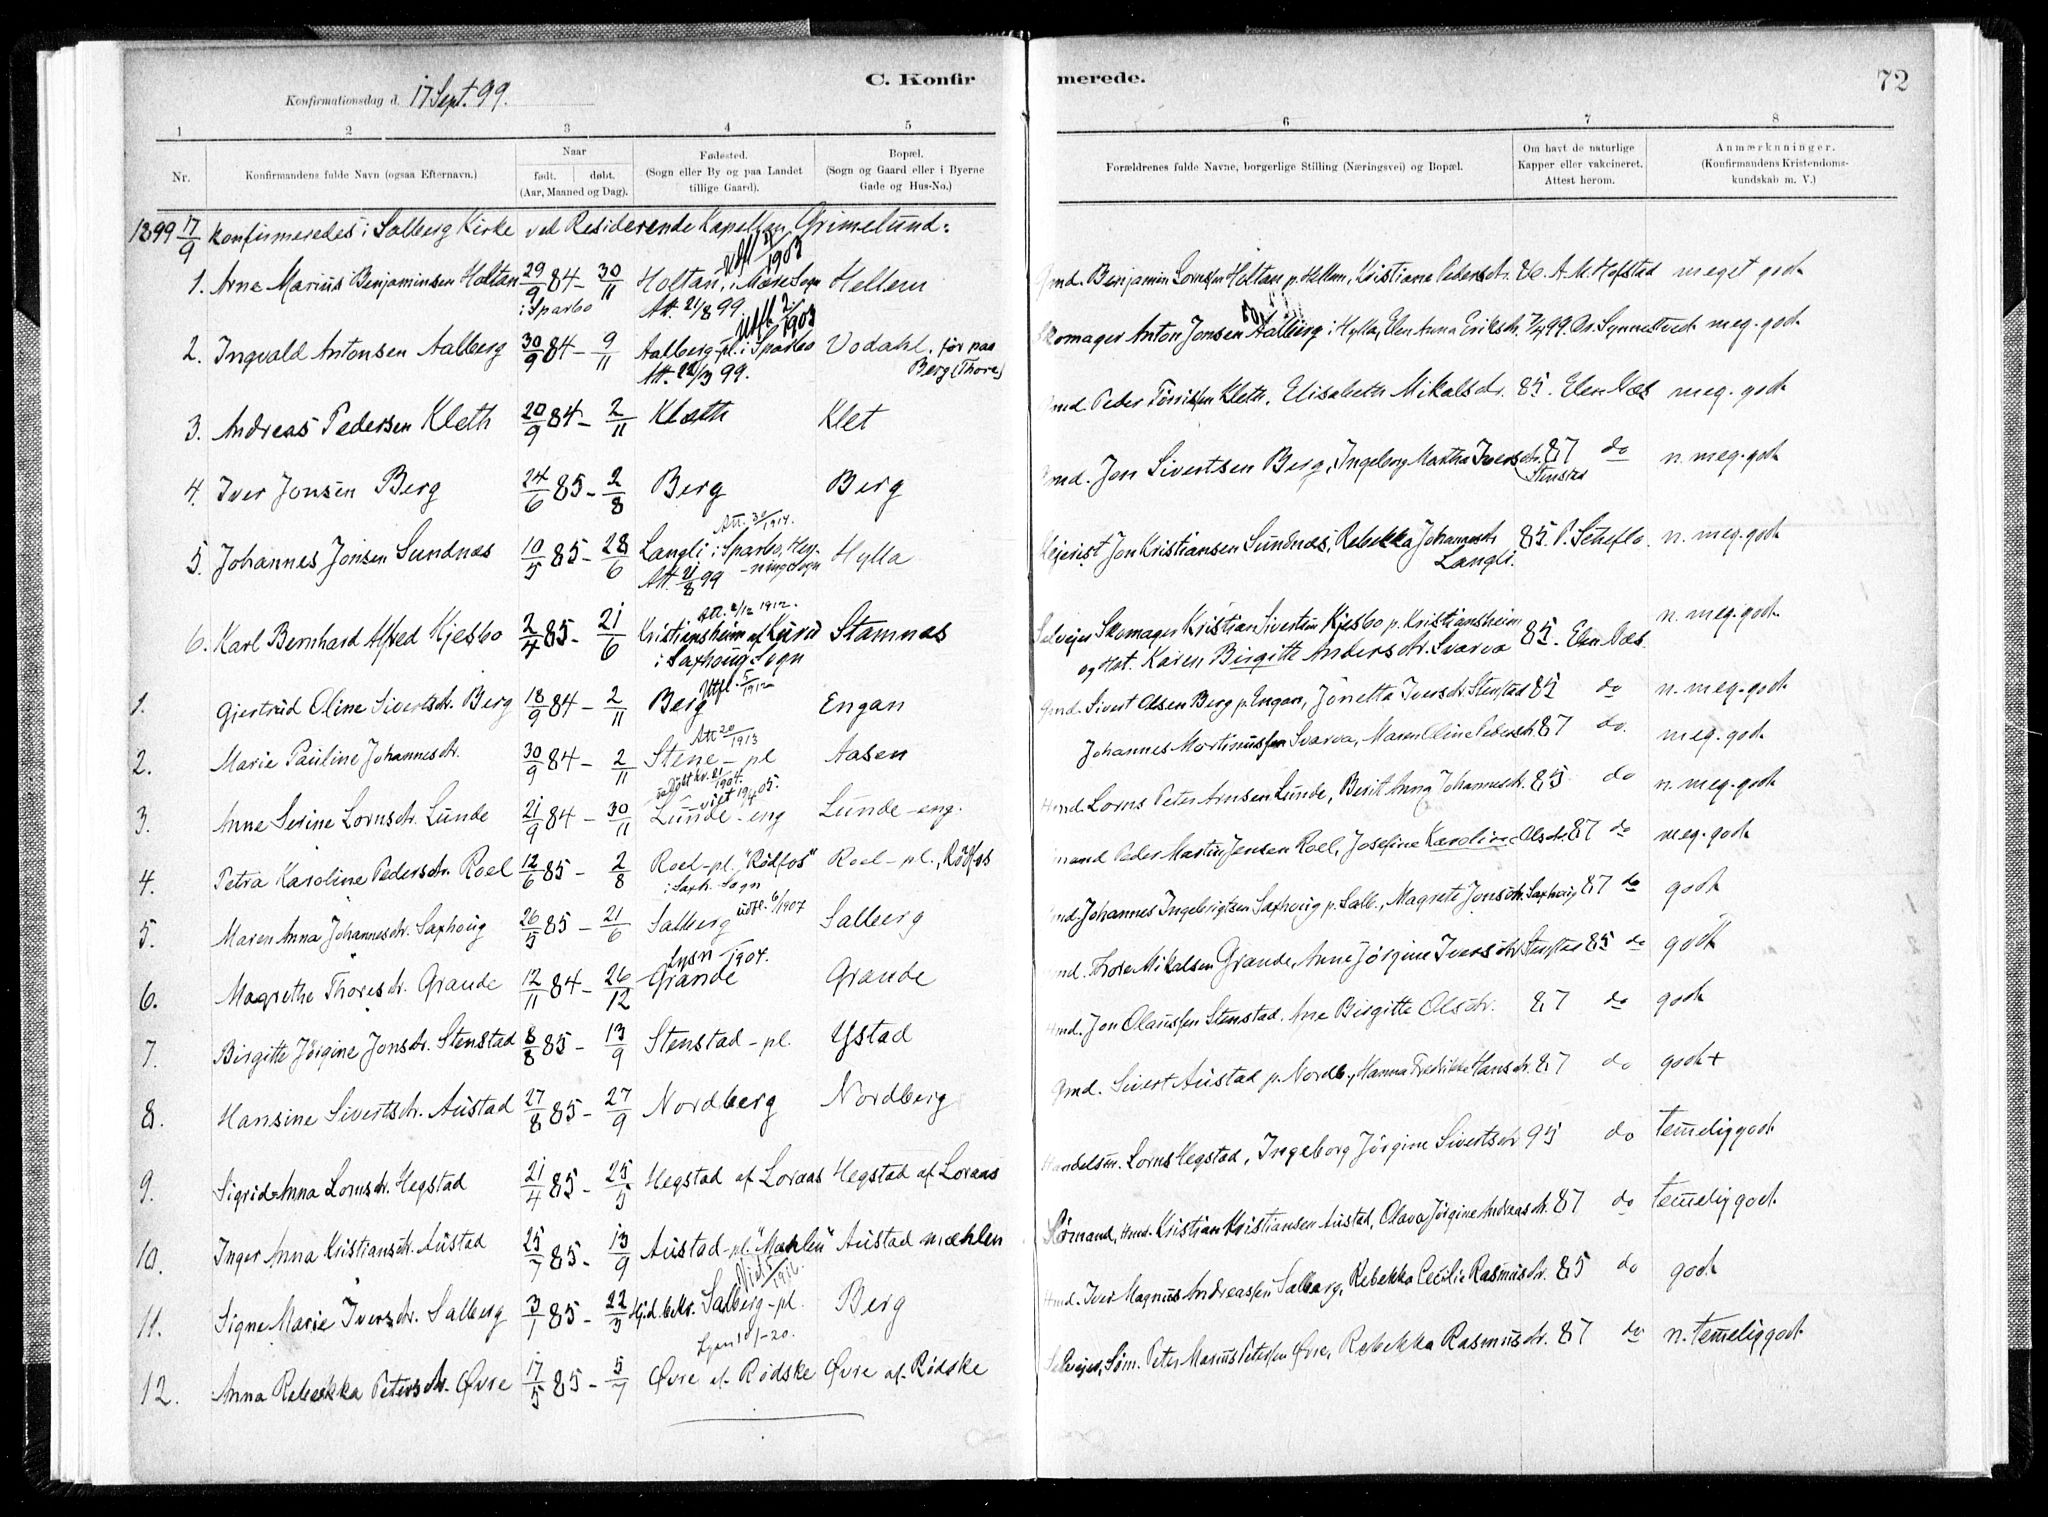 C. Konfirmerede.
72
Konfirmationsdag d. 17 Sept. 99.
1 2 3 4 5 6 7 8
Nr. Konfirmandens fulde Navn (ogsaa Efternavn.) Naar født. døbt. (Aar, Maaned og Dag). Fødested. (Sogn eller By og paa Landet tillige Gaard). Bopæl. (Sogn og Gaard eller i Byerne Gade og Hus-No.) Forældrenes fulde Navne, borgerlige Stilling (Næringsvei) og Bopæl. Om havt de naturlige Kapper eller vakcineret. Attest herom. Anmærkninger. (Konfirmandens Kristendomskundskab m. V.)
1899 17/9 konfirmeredes i Salberg Kirke ved Residerende Kapellan Grimelund:
1903
1. Arne Marius Benjaminsen Holtan 29/9 84 - 30/11 Holtan, i Mære Sogn Hellem Gmd. Benjamin Lornsen Holtan p. Hellem, Kristiane Pedersdr. 86. A. M. Hofstad meget godt
i Sparbo Att. 21/8 99
1903
2. Ingvald Antonsen Aalberg 30/9 84 - 9/11 Aalberg-pl. i Sparbo Vodahl. før paa Skomager Anton Jonsen Aalberg i Hylla, Elen Anna Eriksdr. 7/4 99. Or. Synnestvedt meg. godt
Att. 22/3 99. Berg (Thore)
3. Andreas Pedersen Kleth 20/9 84 - 2/11 Klæth Klet Gmd. Peder Tørrissen Kleth, Elisabeth Mikalsdr. 85. Elen Næs meg. godt
4. Iver Jonsen Berg 24/6 85 - 2/8 Berg Berg Gmd. Jon Sivertsen Berg, Ingeborg Martha Iversdr. 87 do n. meg. godt
Stenstad
Att. 30/1914.
5. Johannes Jonsen Sundnæs 10/5 85 - 28/6 Langli i Sparbo, Hey- Hylla Mejerist Jon Kristiansen Sundnæs, Rebekka Johannesdr. 85. P. Scheflo. n. meg. godt
Att. 21/8 99 -ning Sogn Langli.
Att. 2/12 1912.
6. Karl Bernhard Alfred Kjesbo 2/4 85 - 21/6 Kristiansheim af Kjøru Stamnæs Selvejer Skomager Kristian Sivertsen Kjesbo p. Kristiansheim 85. Elen Næs n. meg. godt
i Saxhoug Sogn og Hst. Karen Birgitte Andersdr. Svarva
Utfl. 5/1912
1. Gjertrud Oline Sivertsdr. Berg 18/9 84 - 2/11 Berg Engan Gmd. Sivert Olsen Berg p. Engan, Jonetta Iversdr. Stenstad 85 do n. meg. godt
Att 20/1913
2. Marie Pauline Johannesdr. 30/9 84 - 2/11 Stene-pl Aasen Johannes Mortinussen Svarva, Maren Oline Pedersdr. 87 do. meg. godt
1904.
3. Anne Serine Lornsdr. Lunde 21/9 84 - 30/11 Lunde-eng Lunde-eng. Hmd. Lorns Peter Arnsen Lunde, Berit Anna Johannesdr. 85 do n. meg. godt
4. Petra Karoline Pedersdr. Roel 12/6 85 - 2/8 Roel-pl. "Rødfos" Roel-pl., Rødfos Peder Martin Jensen Roel, Josefine Karoline Olsdr. 87 do meg. godt
i Saxh. Sogn
udfl. 6/1907
5. Maren Anna Johannesdr. Saxhoug 26/5 85 - 21/6 Salberg Salberg Gmd. Johannes Ingebrigtsen Saxhoug p. Salb., Magrete Jonsdr. Saxhoug 87 do godt
Lysn 1904.
6. Magrethe Thoresdr. Grande 12/11 84 - 26/12 Grande Grande Gmd. Thore Mikalsen Grande, Anne Jørgine Iversdr. Stenstad 85 do godt
7. Birgitte Jørgine Jonsdr. Stenstad 8/8 85 - 13/9 Stenstad-pl. Ystad Hmd. Jon Olaussen Stenstad. Ane Birgitte Olsdr. 87 do godt
8. Hansine Sivertsdr. Austad 27/8 85 - 27/9 Nordberg Nordberg Gmd. Sivert Austad p. Nordb., Hanna Fredrikke Hansdr. 87 do godt +
9. Sigrid Anna Lornsdr. Hegstad 21/4 85 - 25/5 Hegstad af Loraas Hegstad af Loraas Handelsm. Lorns Hegstad, Ingeborg Jørgine Sivertsdr 95 do temelig godt
10. Inger Anna Kristiansdr. Austad 25/7 85 - 13/9 Austad-pl. "Mæhlen" Austad mæhlen Sømand, Hmd. Kristian Kristiansen Austad, Olava Jørgine Andreasdr. 87 do temelig godt
Viet 5/1916.
11. Signe Marie Iversdr. Salberg 3/1 85 - 22/3 Hjd. bekr. Salberg-pl. Berg Hmd. Iver Magnus Andreassen Salberg, Rebekka Cecilie Rasmusdr. 85 do godt
12. Anna Rebekka Petersdr. Øvre 17/5 85 - 5/7 Øvre af Rødske Øvre af. Rødske Selvejer, Søm. Peter Marius Petersen Øvre, Rebekka Rasmusdr. 87 do n. temelig godt